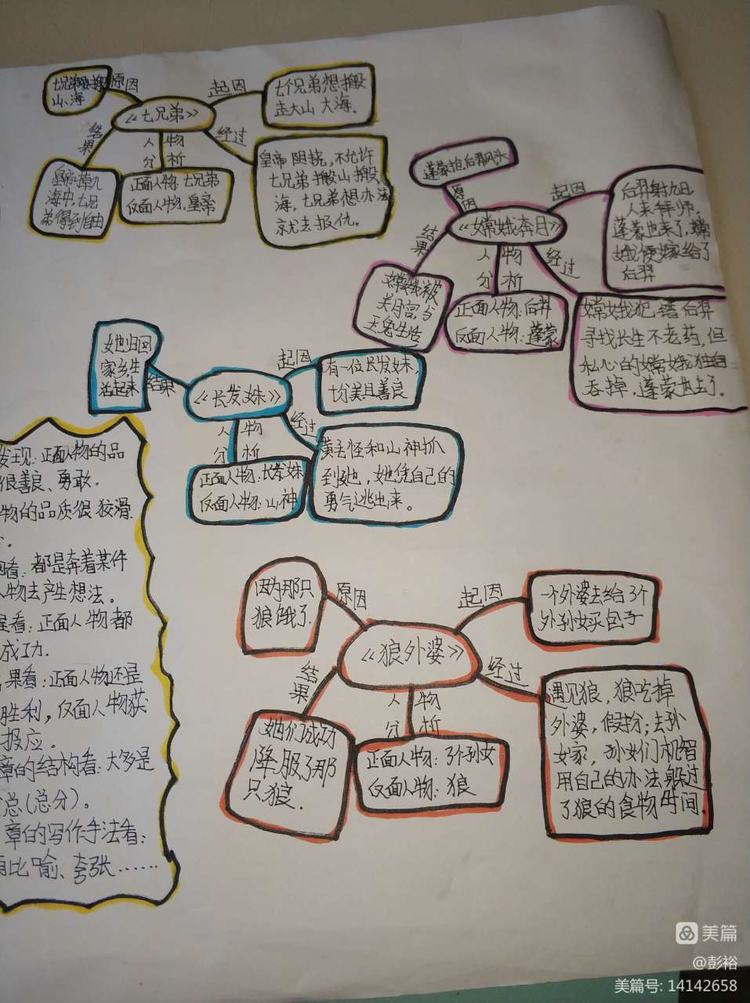 原因
山、海
《七兄弟》
起因
七个兄弟想搬
走大山 大海。
结果
皇帝掉入
海中,七兄
弟得到自由
人物
分析
正面人物:七兄弟
反面人物:皇帝
经过
皇帝 阻挠,不允许
七兄弟搬山搬
海,七兄弟想办法
就去报仇。
原因
《嫦娥奔月》
起因
后羿射九日
人来拜师,
蓬蒙也来了,嫦
娥便嫁给了
后羿
结果
嫦娥被
关月宫,与
玉兔生活
人物
分析
正面人物:后羿
反面人物:蓬蒙
经过
嫦娥犯错后羿
寻找长生不老药,但
嫦娥独自
吞掉,蓬蒙
她归回
家乡生
活起来
结果
《长发妹》
起因
有一位长发妹,
十分美且善良
人物
分析
正面人物:长发妹
反面人物:山神
经过
黄毛怪和山神抓
到她,她凭自己的
勇气逃出来。
发现:正面人物的品
很善良、勇敢。
物的品质很狡滑
看:都是奔着某件
人物去产生想法。
程看:正面人物都
成功.
果看:正面人物还是
胜利,反面人物获
报应。
章的结构看:大多是
总(总分)。
章的写作手法看:
有比喻、夸张……
因为那只
狼饿了.
原因
《狼外婆》
起因
一个外婆去给3个
外孙女买包子
结果
她们成功
降服了那
只狼.
人物
分析
正面人物:3个外孙女
反面人物:狼
经过
遇见狼,狼吃掉
外婆,假扮,去孙
女家,孙女们机智
用自己的办法,躲过
了狼的食物时间.
美篇
@彭裕
美篇号:14142658